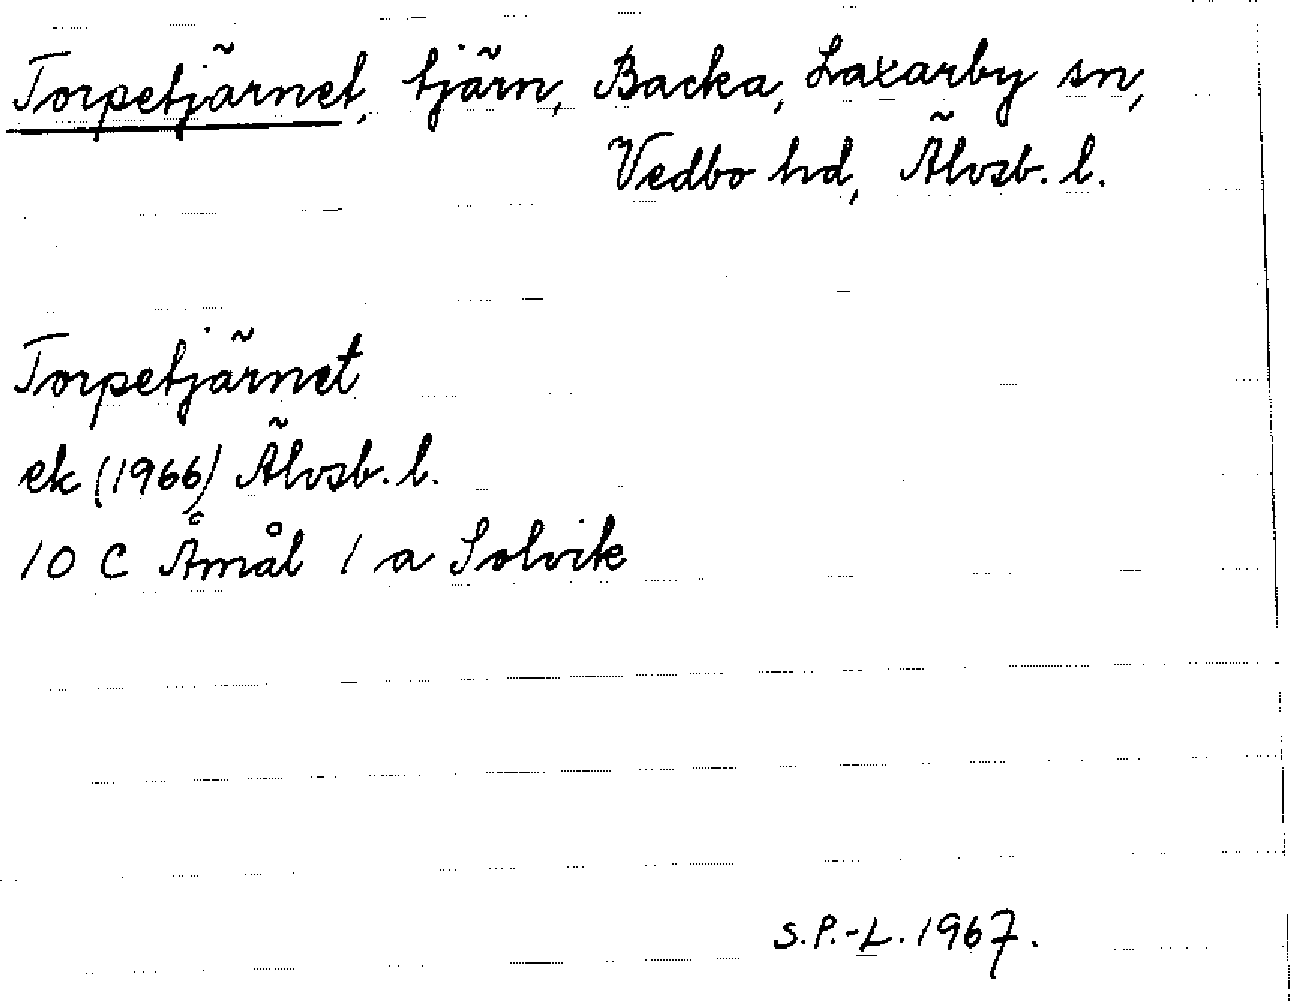 Torpetjärnet, tjärn, Backa, Laxarby sn,
Vedbo hd, Älvsb. l.
Torpetjärnet
ek (1966) Älvsb. l.
10 C Åmål 1 a Solvik
S.P.-L. 1967.